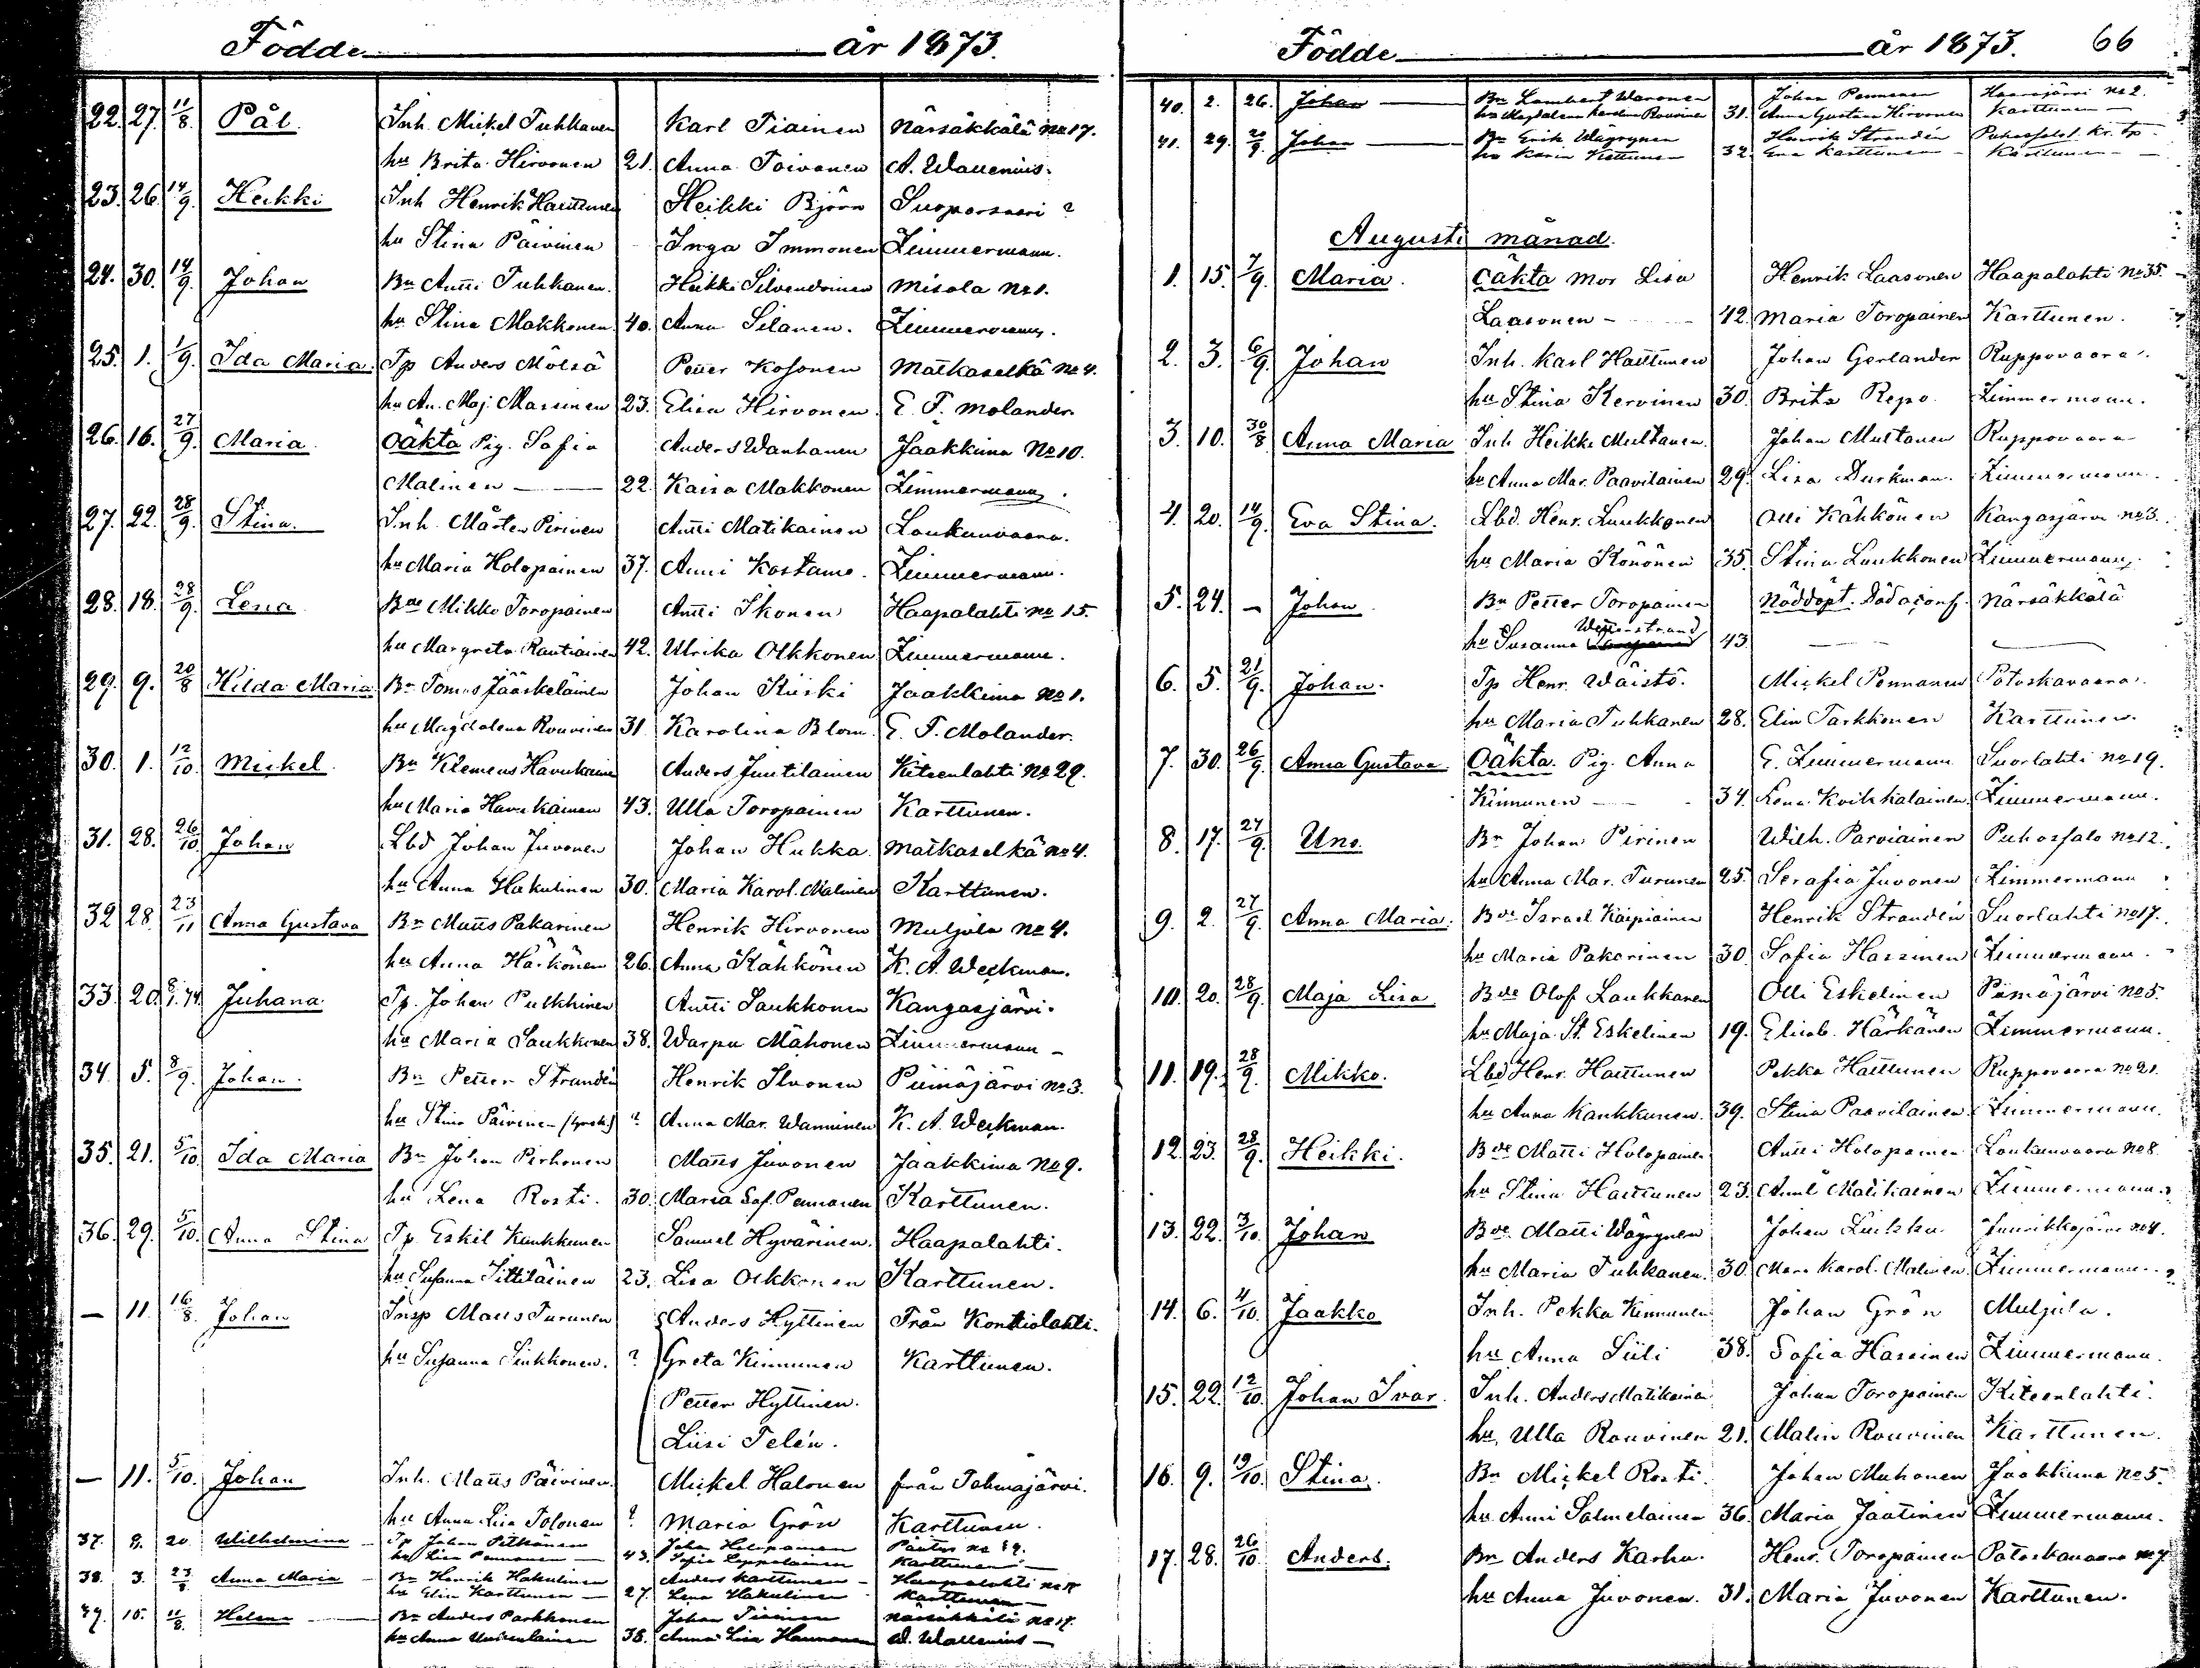 Födde år 1873.
22. 27. 11/8. Pål. Inh. Mickel Tuhkanen Karl Tiainen Närsäkkälä No 17.
hu Brita Hirvonen 21. Anna Toivanen A. Wallenius.
23. 26. 14/9. Heikki Inh Henrik Harttunen Heikki Björn Suoparsaari ?
hu Stina Päivinen Inga Immonen Zimmermann.
24. 30. 14/9. Johan Bn Anni Tuhkanen. Heikki Silvendoinen Misola No 1.
hu Stina Makkonen 40. Anna Silanen. Zimmermann.
25. 1. 1/9. Ida Maria. Tp Anders Mölsä Petter Kosonen Matkaselkä No 4.
hu An. Maj. Massinen 23. Elisa Hirvonen E. F. Molander.
26. 16. 27/9. Maria. Oäkta Pig. Sofia Anders Wanhanen Jaakkima No 10.
Malinen 22. Kaisa Makkonen Zimmermann.
27. 22. 28/9. Stina. Inh. Mårten Pirinen Antti Matikainen Loukunvaara.
hu Maria Holopainen 37. Anni Kostamo. Zimmermann.
28. 18. 28/9. Lena Bde Mikko Toropainen Antti Ikonen Haapalahti No 15.
hu Margreta Rautiainen 42. Ulrika Olkkonen Zimmermann.
29. 9. 20/8 Hilda Maria Bn Tomas Jääskeläinen Johan Kiiski Jaakkima No 1.
hu Magdalena Rouvinen 31 Karolina Blom. E. F. Molander.
30. 1. 12/10. Mickel. Bn Klemens Havukainen Anders Juutilainen Kiteenlahti No 22.
hu Maria Havukainen 43. Ulla Toropainen Karttunen.
31. 28. 26/10. Johan Lbd Johan Juvonen Johan Hukka. Matkaselkä No 4.
hu Anna Hakulinen 30. Maria Karol. Malinen Karttunen.
32 28. 23/11 Anna Gustava Bn Matts Pakarinen Henrik Hirvonen Muljula No 4.
hu Anna Härkönen 26. Anna Kähkönen K. A. Weckman.
33. 20. 8/1. 74. Juhana Tp. Johan Pulkkinen Antti Laukkonen Kangasjärvi.
hu Maria Laukkonen 38. Warpu Mähonen Zimmermann
34. 5. 8/9. Johan. Bn Petter Strandén Henrik Ilvonen Piimäjärvi No 3.
hu Stina Päivinen ? Anna Mar. Wanninen K. A. Weckman.
35. 21. 5/10. Ida Maria Bn Johan Pirhonen Matts Juvonen Jaakkima No 9.
hu Lena Rosti. 30. Maria Sof. Pennanen Karttunen.
36. 29. 5/10. Anna Stina Tp. Eskil Kaukkunen Samuel Hyvärinen. Haapalahti.
hu Susanna Tittiläinen 23. Lisa Olkkonen Karttunen.
— 11. 16/8. Johan Insp Matts Turunen Anders Hyttinen Från Kontiolahti.
hu Susanna Sinkkonen. ? Greta Kinnunen Karttunen.
Petter Hyttinen.
Liisi Telén.
— 11. 5/10. Johan Inh. Matts Päivinen. Mickel Halonen från Tohmajärvi.
hu Anna Lisa Tolonen ? Maria Grön Karttunen.
37. 9. 20 Wilhelmina Tp Johan Pitkänen Johan Holopainen
hu Lisa Pennonen 43. Sofia Leppälainen Karttunen
38. 3. 23/8 Anna Maria Bn Henrik Hakulinen Anders Karttunen Haapalahti
hu Elin Karttunen 27. Lena Hakulinen Karttunen
39. 15. 11/8. Helena Bn Anders Parkkonen Johan Tiainen Närsäkkälä No 17.
hu Anna 38. Anna Lisa Hannonen W. Wallenius
Födde år 1873. 66
40. 2. 26. Johan Bn Lambert Waronen Johan Pennanen Haarajärvi No 2.
hu Magdalena Karolina Rouvinen 31. Anna Gustava Hirvonen Karttunen
41. 29. Johan Bn Erik Wäyrynen Henrik Strandén
hu Karin Kettunen 32. Eva Karttunen Karttunen
Augusti månad.
1. 15. 7/9. Maria. Oäkta mor Lisa Henrik Laasonen Haapalahti No 35.
Laasonen 42. Maria Toropainen Karttunen.
2. 3. 6/9. Johan Inh. Karl Hattunen Johan Gerlander Ruppovaara.
hu Stina Kervinen 30. Brita Repo. Zimmermann.
3. 10. 30/8 Anna Maria Inh Heikki Multanen. Johan Multanen Ruppovaara
hu Anna Mar. Paavilainen 29. Lisa Durkman. Zimmermann.
4. 20. 14/9. Eva Stina. Lbd. Henr. Laukkonen Olli Kähkönen Kangasjärvi No 3.
hu Maria Könönen 35. Stina Laukkonen Zimmermann.
5. 24. — Johan Bn Petter Toropainen Nöddöpt. Närsäkkälä
hu Susanna Wetterstrand 43.
6. 5. 21/9. Johan. Tp Henr. Wäistö. Mickel Pennanen Potoskavaara.
hu Maria Tuhkanen 28. Elin Tarkkonen Karttunen.
7. 30. 26/9. Anna Gustava. Oäkta. Pig. Anna E. Zimmermann Suorlahti No 19.
Kinnunen 34. Lena Kvikkalainen Zimmermann.
8. 17. 27/9. Uno. Bn Johan Pirinen Wilh. Parviainen Puhossalo No 12.
hu Anna Mar. Turunen 25. Serafia Juvonen Zimmermann
9. 2. 27/9. Anna Maria. Bde Israel Karpiainen Henrik Strandén Suorlahti No 17.
hu Maria Pakarinen 30. Sofia Hassinen Zimmermann.
10. 20. 28/9. Maja Lisa Bde Olof Laukkanen Olli Eskelinen Piimäjärvi No 5.
hu Maja St. Eskelinen 19. Elisab. Härkänen Zimmermann.
11. 19. 28/9. Mikko. Lbd Henr. Hattunen Pekka Hattunen Ruppovaara No 21.
hu Anna Kaukkunen. 39. Stina Paavilainen Zimmermann.
12. 23. 28/9. Heikki. Bde Matti Holopainen Antti Holopainen Loukunvaara No 8.
hu Stina Hattunen 23. Anni Matikainen Zimmermann.
13. 22. 3/10. Johan Bde Matti Wäyrynen Johan No 4.
hu Maria Tuhkanen. 30. Maria Karol. Malinen. Zimmermann.
14. 6. 4/10. Jaakko Inh. Pekka Kinnunen Johan Grön Muljula.
hu Anna Siili 38. Sofia Hassinen Zimmermann.
15. 22. 12/10. Johan Ivar. Inh. Anders Matikainen Johan Toropainen Kiteenlahti.
hu Ulla Rouvinen 21. Malin Rouvinen Karttunen.
16. 9. 19/10. Stina. Bn Mickel Rosti. Johan Muhonen Jaakkima No 5.
hu Anni Salmelainen 36. Maria Jaatinen Zimmermann.
17. 28. 26/10. Anders. Bn Anders Karhu. Henr. Toropainen Potoskavaara No 7
hu Anna Juvonen. 31. Maria Juvonen Karttunen.